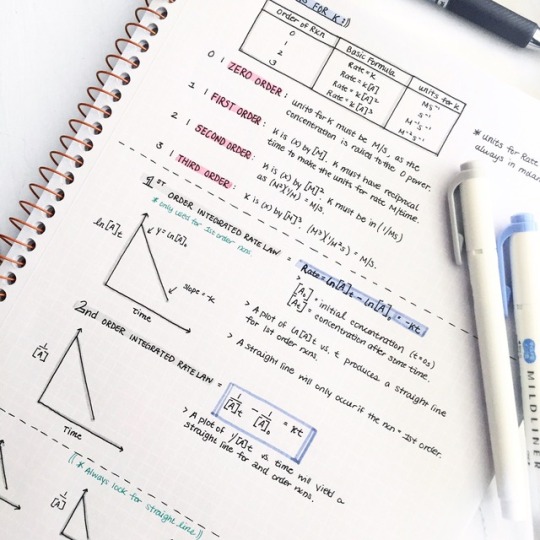 FOR K :)
Order of Rxn | Basic Formula | units for k
0 | Rate = k | Ms⁻¹
1 | Rate = k[A] | s⁻¹
2 | Rate = k[A]² | M⁻¹s⁻¹
3 | Rate = k[A]³ | M⁻²s⁻¹
* units for Rate
always in
0 | ZERO ORDER: units for k must be M/s, as the
concentration is raised to the 0 power.
1 | FIRST ORDER: k is (x) by [M]. k must have reciprocal
time to make the units for rate M/time.
2 | SECOND ORDER: k is (x) by [M]² k must be in (1/Ms)
as (M²)(1/M) = M/s.
3 | THIRD ORDER: k is (x) by [M]³. (M³)(1/M²s) = M/s.
1st ORDER INTEGRATED RATE LAW =
* only used for 1st order rxns.
Rate = ln[A]t - ln[A]₀ = -kt
ln[A]t
y = ln[A]₀
slope = -k
Time
> [A₀] = initial concentration (t=0s)
[At] = concentration after some time.
> A plot of ln[A]t vs. t produces a straight line
for 1st order rxns.
> A straight line will only occur if the rxn = 1st order.
2nd ORDER INTEGRATED RATE LAW =
1/[A]t - 1/[A]₀ = kt
1/[A]
Time
> A plot of 1/[A]t vs time will yield a
straight line for 2nd order rxns.
* Always look for
straight line))
1/[A]
MILDLINER